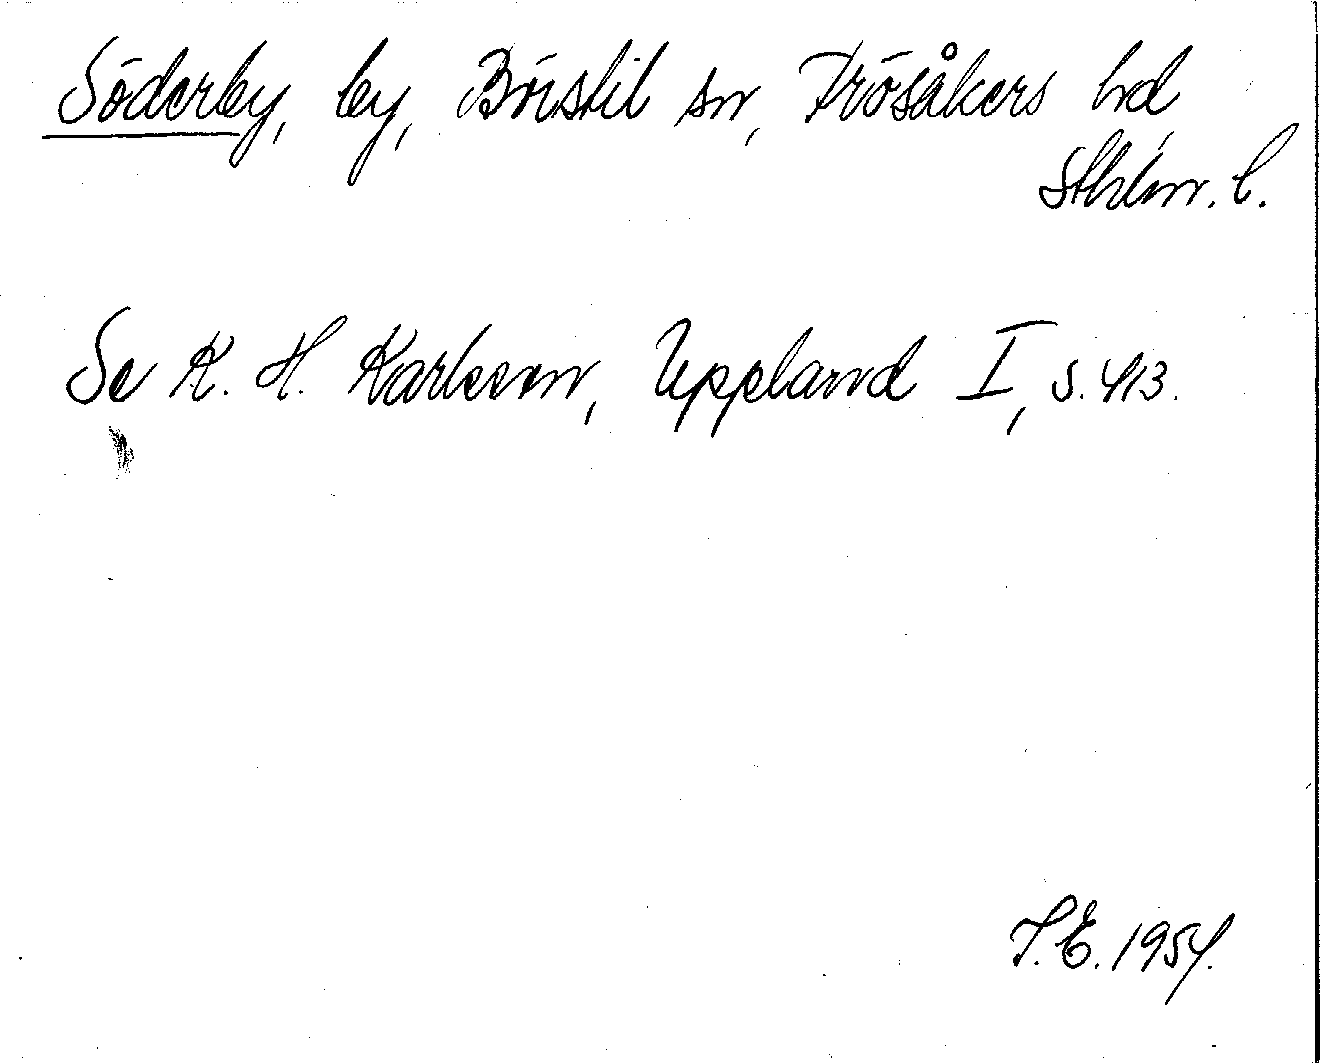 Söderby, by, Börstil sn, Frösåkers hd,
Sthlm. l.
Se K. H. Karlsson, Uppland I, s. 413.
T.E. 1954.